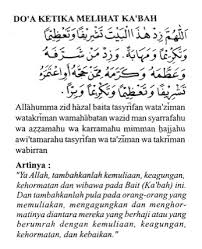 DO'A KETIKA MELIHAT KA'BAH
اَللّٰهُمَّ زِدْ هٰذَا الْبَيْتَ تَشْرِيْفًا وَتَعْظِيْمًا
وَتَكْرِيْمًا وَمَهَابَةً. وَزِدْ مَنْ شَرَّفَهُ
وَعَظَّمَهُ وَكَرَّمَهُ مِمَّنْ حَجَّهُ أَوِاعْتَمَرَ
تَشْرِيْفًا وَتَعْظِيْمًا وَتَكْرِيْمًا وَبِرًّا
Allâhumma zid hâzal baita tasyrîfan wata'zîman
watakrîman wamahâbatan wazid man syarrafahu
wa azzamahu wa karramahu mimman hajjahu
awi'tamarahu tasyrîfan wa ta'zîman wa takrîman
wabirran
Artinya :
"Ya Allah, tambahkanlah kemuliaan, keagungan,
kehormatan dan wibawa pada Bait (Ka'bah) ini.
Dan tambahkanlah pula pada orang-orang yang
memuliakan, mengagungkan dan menghor-
matinya diantara mereka yang berhaji atau yang
berumrah dengan kemuliaan, keagungan,
kehormatan, dan kebaikan."